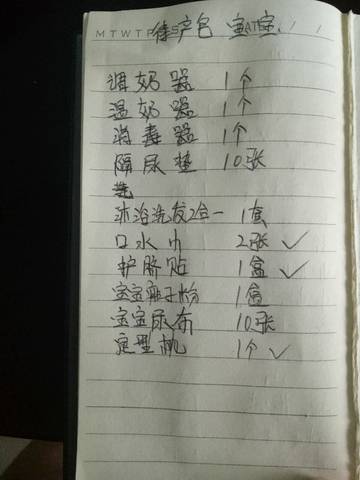 M T W T F S S 待产包 宝宝. DATE / /
调奶器 1个
温奶器 1个
消毒器 1个
隔尿垫 10张
沐浴洗发2合一 1套
口水巾 2张 ✓
护脐贴 1盒 ✓
宝宝痱子粉 1盒
宝宝尿布 10张
定型枕 1个 ✓